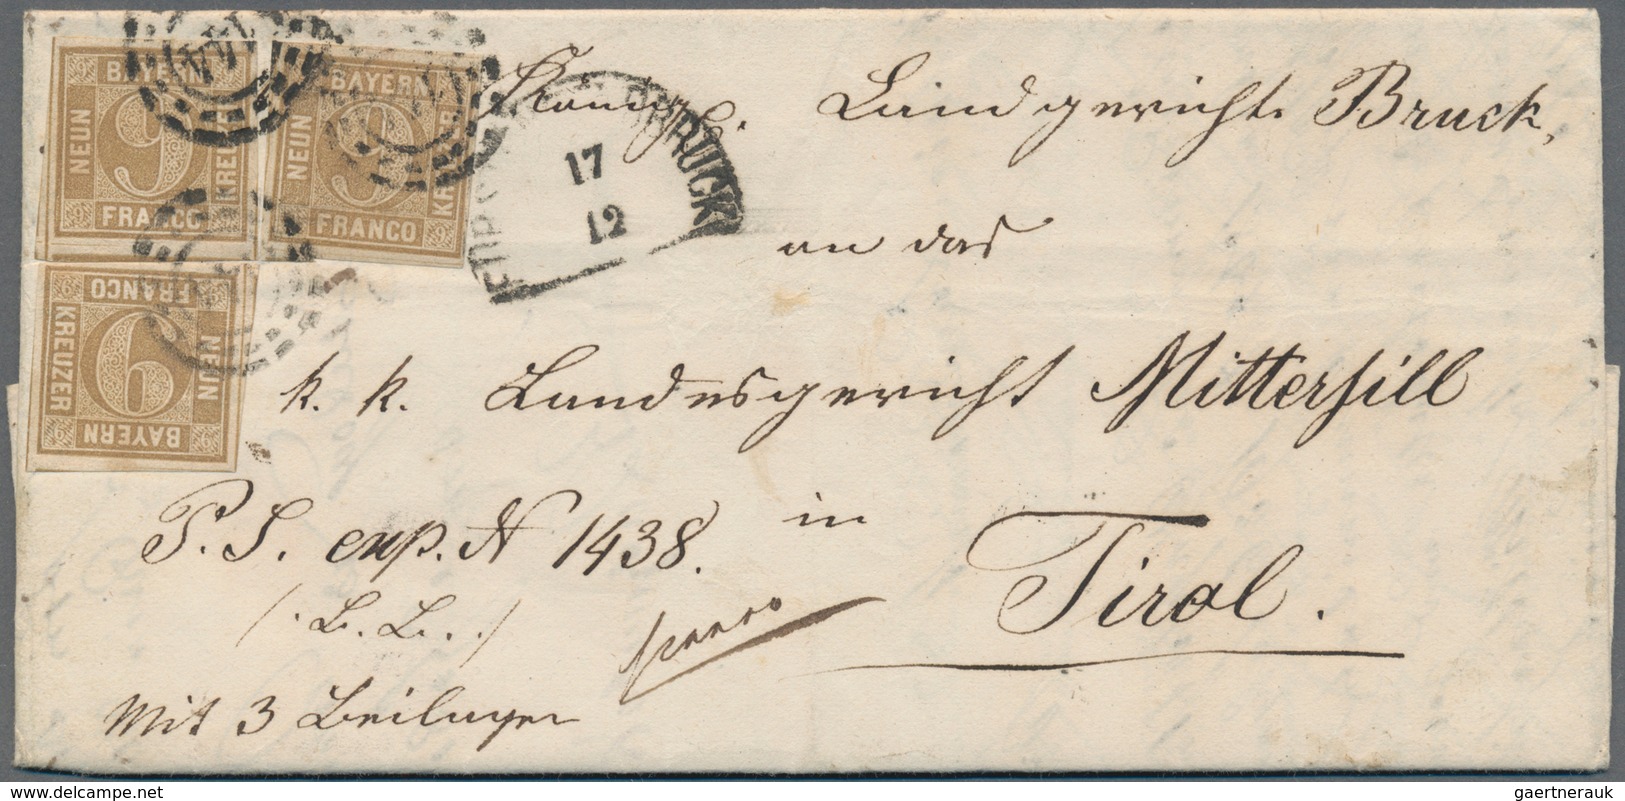 BAYERN
NEUN
KREUZER
FRANCO
9
BAYERN
NEUN
KREUZER
FRANCO
9
FRANCO
KREUZER
NEUN
BAYERN
9
17
12
Königl. Landgericht Bruck,
an das
k. k. Landesgericht Mittersill
P. S. exp. N 1438. in
Tirol.
/. L. L. ./
franco
Mit 3 Beilagen
delcampe.net
gaertnerauk